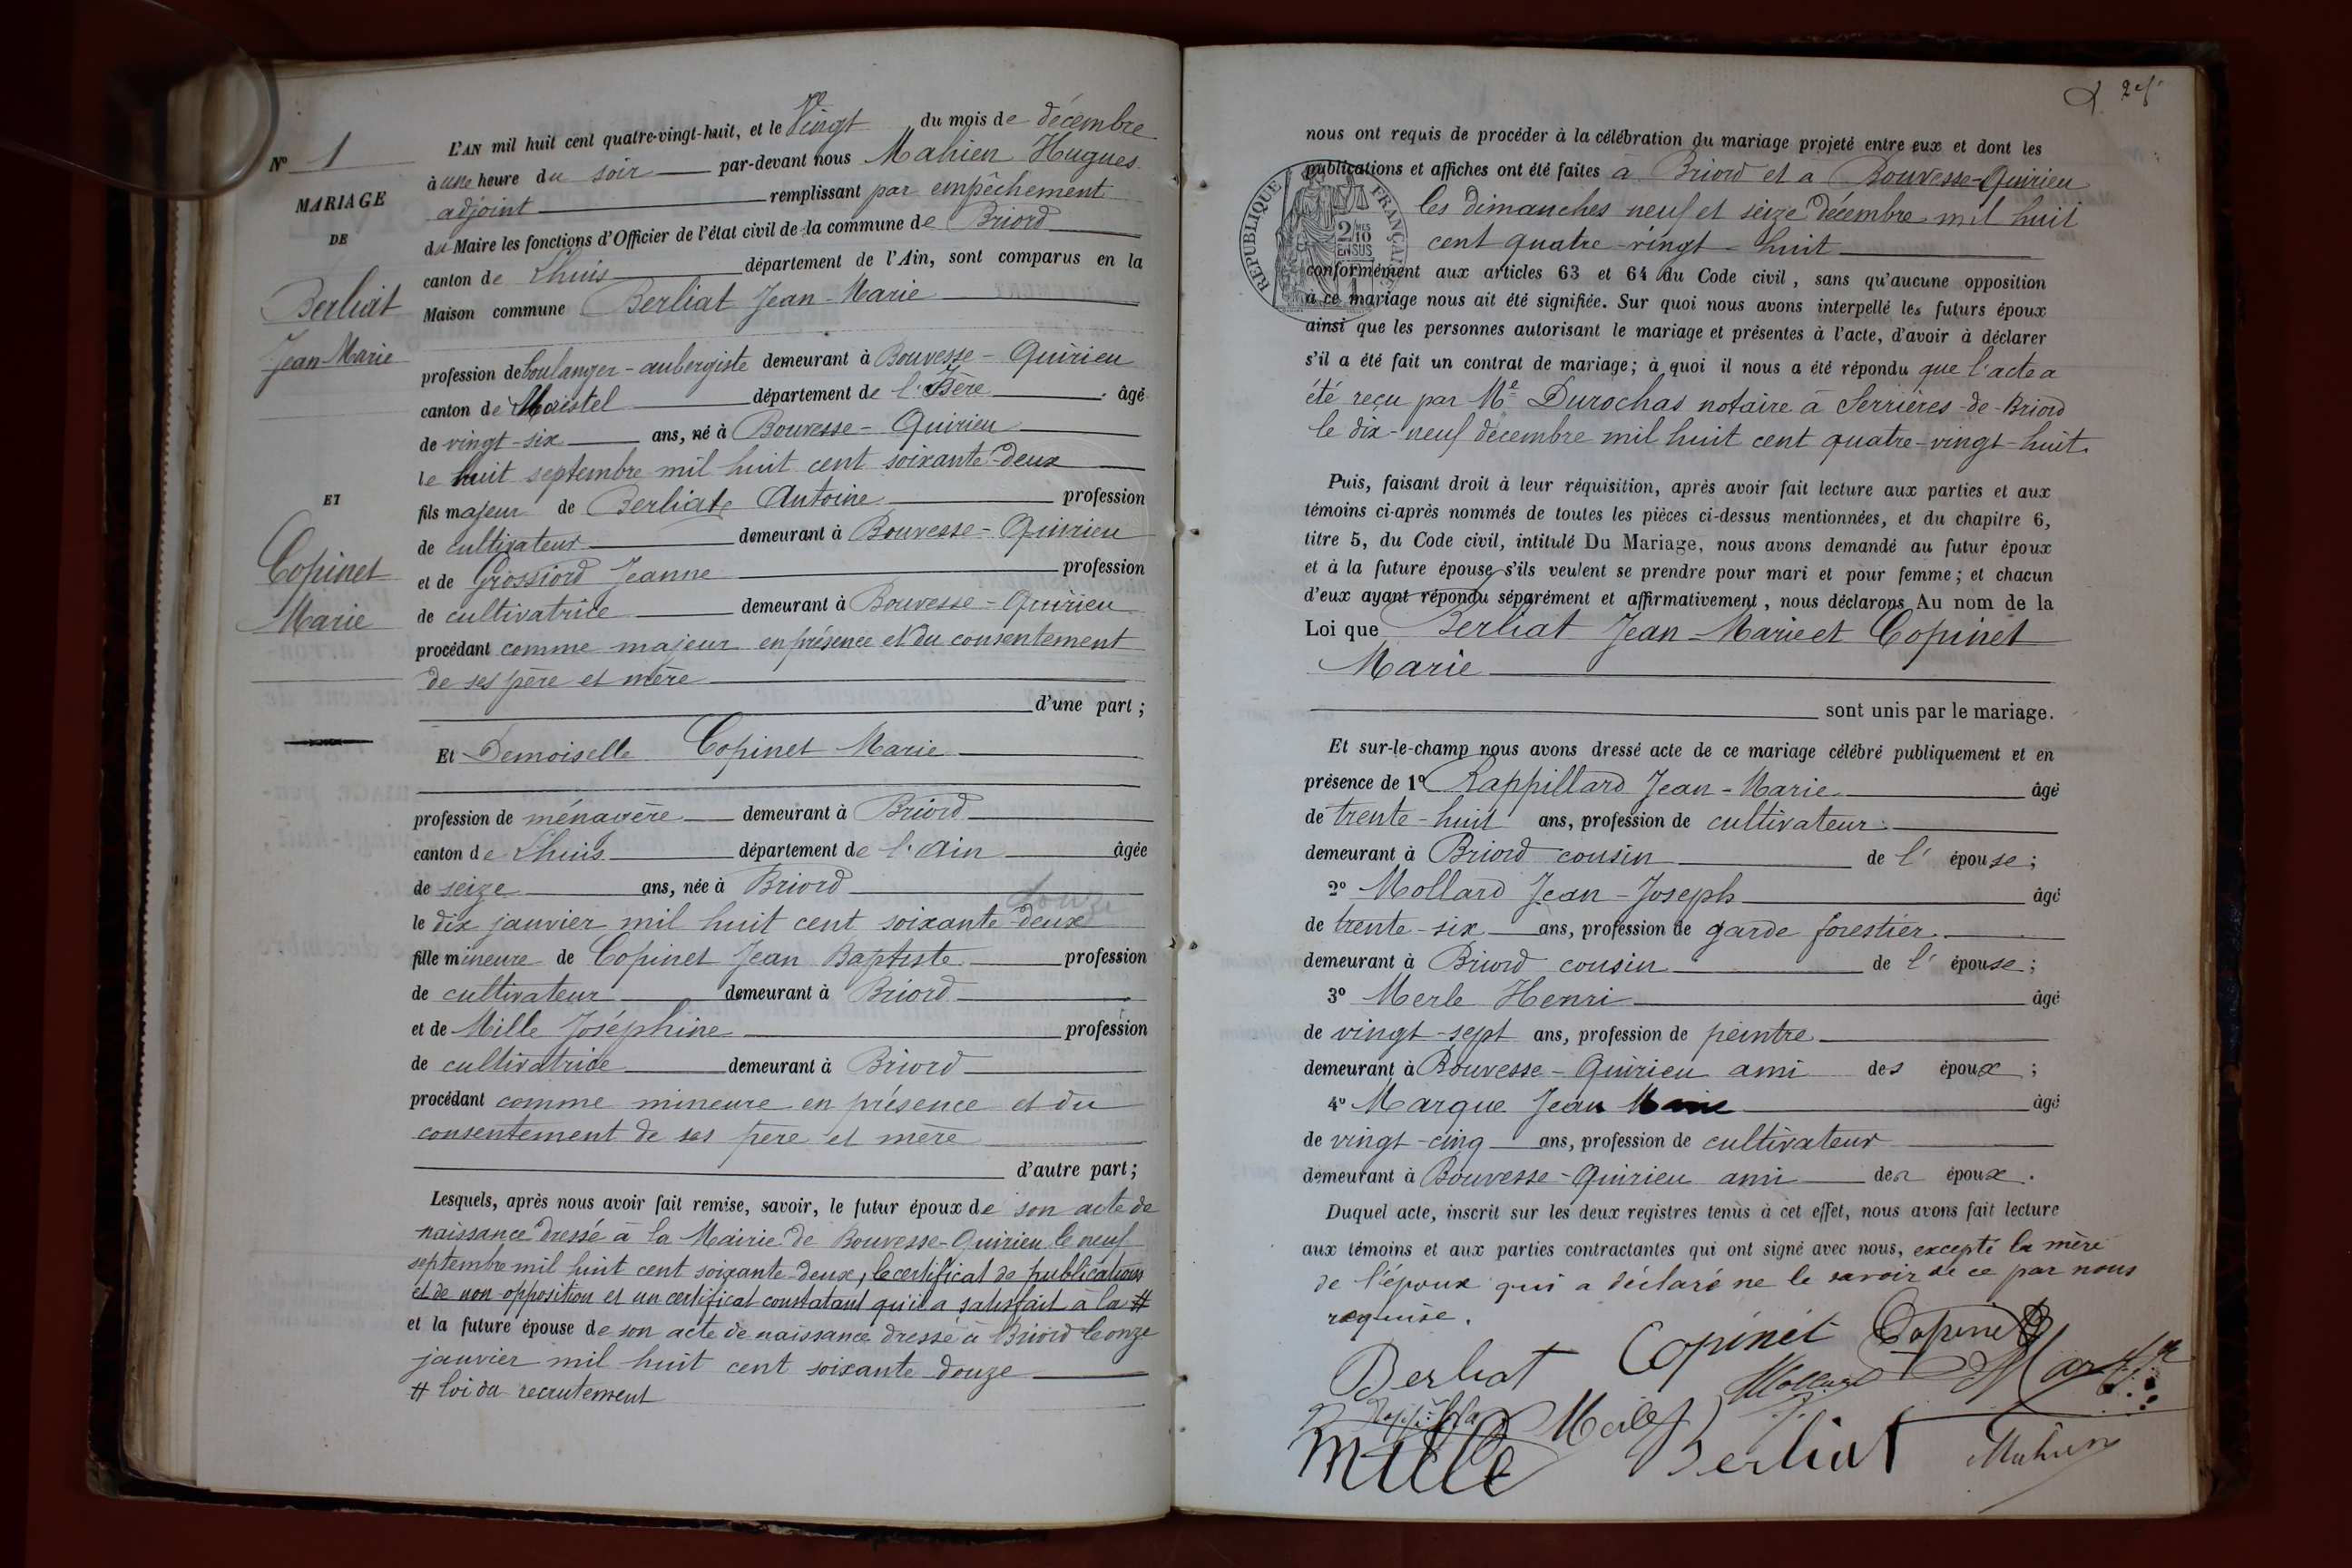 N° 1
MARIAGE
DE
Berliat
Jean Marie
ET
Copinet
Marie
L'AN mil huit cent quatre-vingt-huit, et le Vingt du mois de décembre
à une heure du soir par-devant nous Mahien Hugues
adjoint remplissant par empêchement
du Maire les fonctions d'Officier de l'état civil de la commune de Briord
canton de Lhuis département de l'Ain, sont comparus en la
Maison commune Berliat Jean-Marie
profession de boulanger-aubergiste demeurant à Bouvesse-Quirieu
canton de Morestel département de l'Isère âgé
de vingt-six ans, né à Bouvesse-Quirieu
le huit septembre mil huit cent soixante-deux
fils majeur de Berliat Antoine profession
de cultivateur demeurant à Bouvesse-Quirieu
et de Grossiord Jeanne profession
de cultivatrice demeurant à Bouvesse-Quirieu
procédant comme majeur en présence et du consentement
de ses père et mère
d'une part ;
Et Demoiselle Copinet Marie
profession de ménagère demeurant à Briord
canton de Lhuis département de l'Ain âgée
de seize ans, née à Briord
douze
le dix janvier mil huit cent soixante-deux
fille mineure de Copinet Jean Baptiste profession
de cultivateur demeurant à Briord
et de Mille Joséphine profession
de cultivatrice demeurant à Briord
procédant comme mineure en présence et du
consentement de ses père et mère
d'autre part ;
Lesquels, après nous avoir fait remise, savoir, le futur époux de son acte de
naissance dressé à la Mairie de Bouvesse-Quirieu le neuf
septembre mil huit cent soixante-deux, le certificat de publications
et de non opposition et un certificat constatant qu'il a satisfait à la #
et la future épouse de son acte de naissance dressé à Briord le onze
janvier mil huit cent soixante douze
# loi du recrutement
nous ont requis de procéder à la célébration du mariage projeté entre eux et dont les
publications et affiches ont été faites à Briord et a Bouvesse-Quirieu
les dimanches neuf et seize décembre mil huit
cent quatre-vingt-huit
RÉPUBLIQUE FRANÇAISE
2/10 MES EN SUS
conformément aux articles 63 et 64 du Code civil, sans qu'aucune opposition
à ce mariage nous ait été signifiée. Sur quoi nous avons interpellé les futurs époux
ainsi que les personnes autorisant le mariage et présentes à l'acte, d'avoir à déclarer
s'il a été fait un contrat de mariage ; à quoi il nous a été répondu que l'acte a
été reçu par Me Durochas notaire à Serrières-de-Briord
le dix-neuf décembre mil huit cent quatre-vingt-huit.
Puis, faisant droit à leur réquisition, après avoir fait lecture aux parties et aux
témoins ci-après nommés de toutes les pièces ci-dessus mentionnées, et du chapitre 6,
titre 5, du Code civil, intitulé Du Mariage, nous avons demandé au futur époux
et à la future épouse s'ils veulent se prendre pour mari et pour femme ; et chacun
d'eux ayant répondu séparément et affirmativement, nous déclarons Au nom de la
Loi que Berliat Jean-Marie et Copinet
Marie
sont unis par le mariage.
Et sur-le-champ nous avons dressé acte de ce mariage célébré publiquement et en
présence de 1° Rappillard Jean-Marie âgé
de trente-huit ans, profession de cultivateur
demeurant à Briord cousin de l'épouse ;
2° Mollard Jean-Joseph âgé
de trente-six ans, profession de garde forestier
demeurant à Briord cousin de l'épouse ;
3° Merle Henri âgé
de vingt-sept ans, profession de peintre
demeurant à Bouvesse-Quirieu ami des époux ;
4° Marque Jean Marie âgé
de vingt-cinq ans, profession de cultivateur
demeurant à Bouvesse-Quirieu ami des époux.
Duquel acte, inscrit sur les deux registres tenus à cet effet, nous avons fait lecture
aux témoins et aux parties contractantes qui ont signé avec nous, excepté la mère
de l'époux qui a déclaré ne le savoir de ce par nous
requise.
Berliat Copinet Copinet
Mollard
Merle
Mille Berliat Mahien